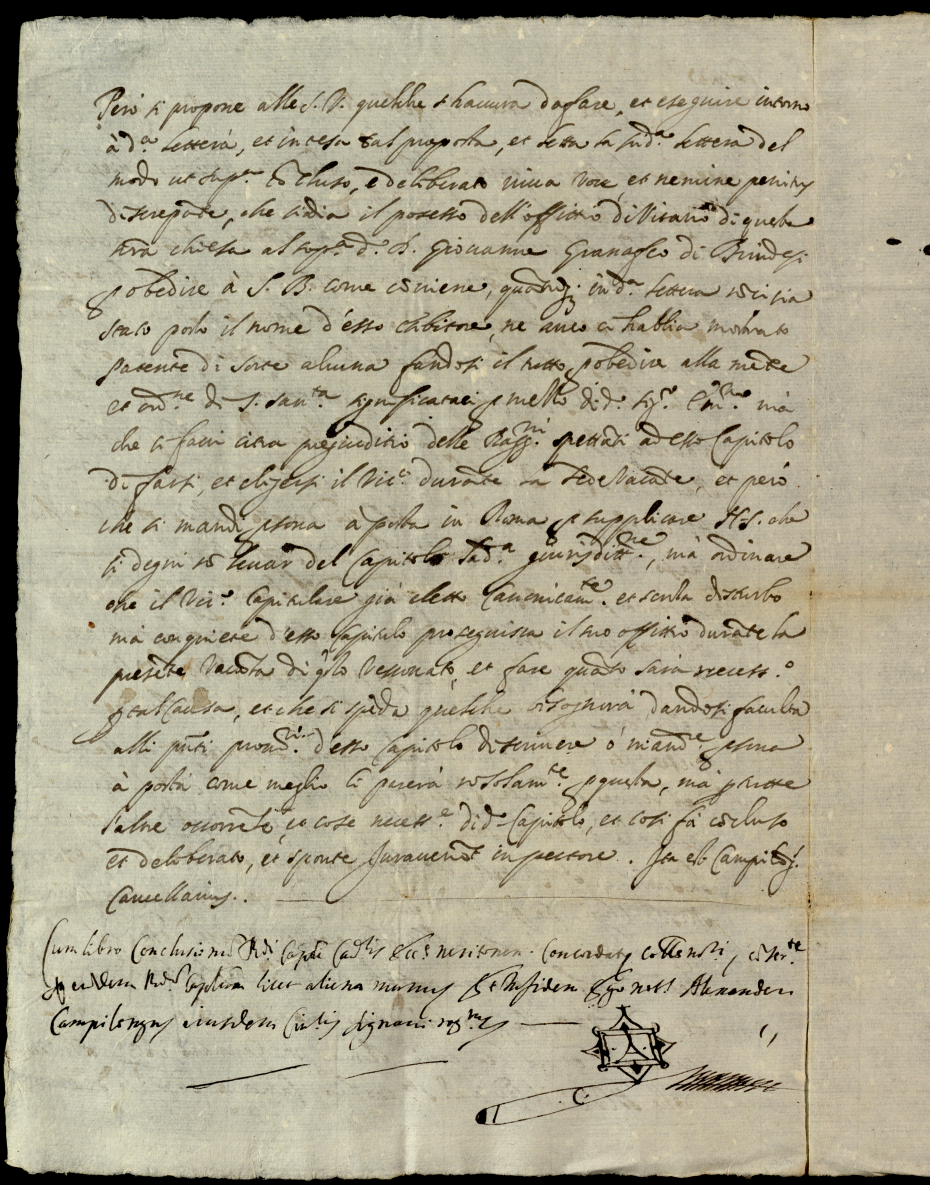 Però si propone alle S. V. quelche s'havera da fare, et eseguire intorno
à d.ª lettera, et intesa tal proposta, et letta la sud.ª lettera del
modo ut sup.ª cõcluso, e deliberato viva voce et nemine penitus
discrepãte, che si dia il possesso dell'offitio di Vicario di questa
nrã chiesa al sop.º d. D. Giovanne Granafeo di Brindesi
p obedire à S. B. come cõviene, in d.ª lettera nõ ci sia
stato posto il nome d'esso exhibitore, ne anco ci habbia mostrato
patente di sorte alcuna facendosi il tutto p obedire alla mẽte
et ord.ne di S. San.ta significataci p mezzo di d.º Sig.r Em.mo mà
che si facci citra pregiuditio delle Raggi.ni spettãti ad esso Capitolo
di farsi, et eligersi il Vic.º durãte la Sede Vacãte, et però
che si mandi psona à posta in Roma p supplicare S. S. che
si degni nõ levar del Capitolo sud.ª giurisditt.ne, mà ordinare
che il Vic.º Capitulare già eletto Canonicam.te et senza disturbo
mà con quiete d'esso Capitolo proseguisca il suo offitio durãte la
presẽte vacãza di q̃sto Vescovato, et fare quãto sarà necess.º
p tal causa, et che si spẽda quelche bisognerà dandosi facultà
alli p̃nti d'esso Capitolo di scrivere ò mand.re psona
à posta come meglio li parerà nõ solam.te p questa, mà p tutte
l'altre occorrẽze, et cose necess.e di d.º Capitolo, et così fù cõcluso
et deliberato, et sponte Juraverũt in pectore. Ita est Campilõg.s
Cancellarius.
Cum libro Conclusionũ R.di Cap.li Cat.lis Ecc.e neritonen. concordat,
licet aliena manu, Et in fidem Ego not.s Alexander
Campilongus eiusdem Civ.tis signavi rog.tus